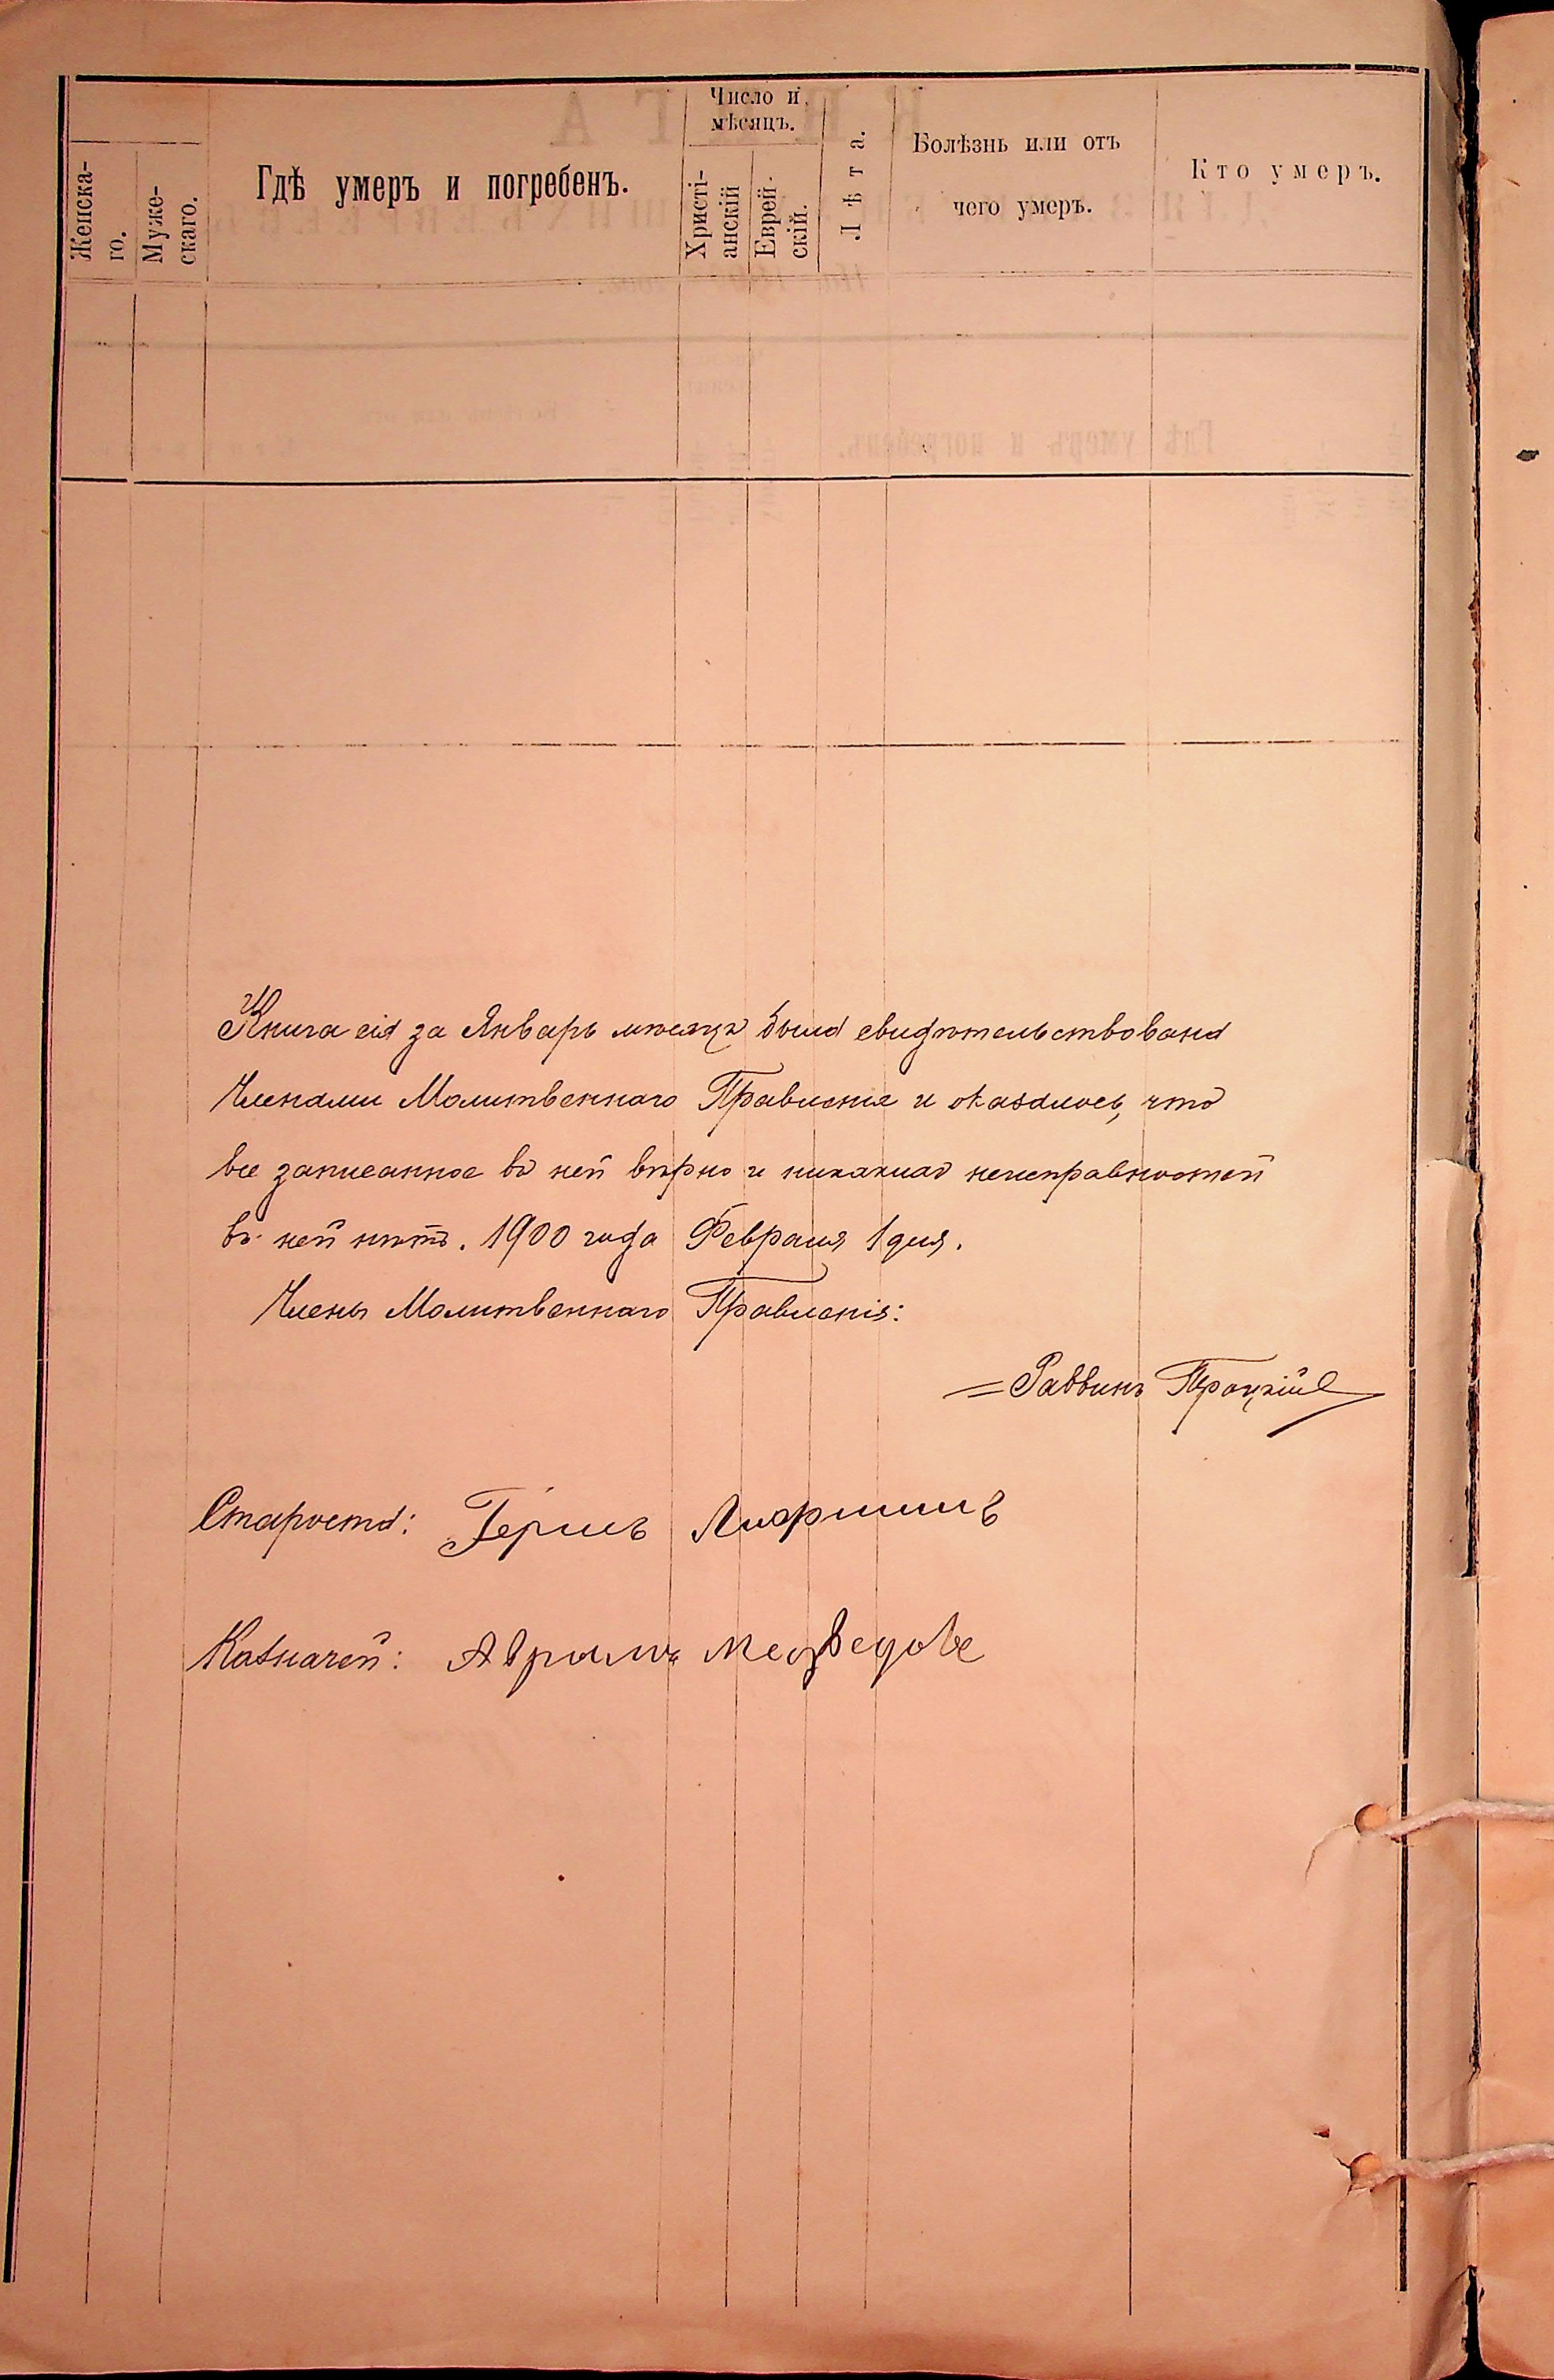 Женска-
го.
Муже-
скаго.
Гдѣ умеръ и погребенъ.
Число и
мѣсяцъ.
Христі-
анскій
Еврей-
скій.
Лѣта.
Болѣзнь или отъ
чего умеръ.
Кто умеръ.
Книга сія за Январь мѣсяцъ была свидѣтельствована
Членами Молитвеннаго Правленія и оказалось, что
все записанное въ ней вѣрно и никакихъ неисправностей
въ ней нѣтъ. 1900 года Февраля 1 дня.
Члены Молитвеннаго Правленія:
Раввинъ
Староста: Герцъ
Казначей: Аврамъ Медведовъ